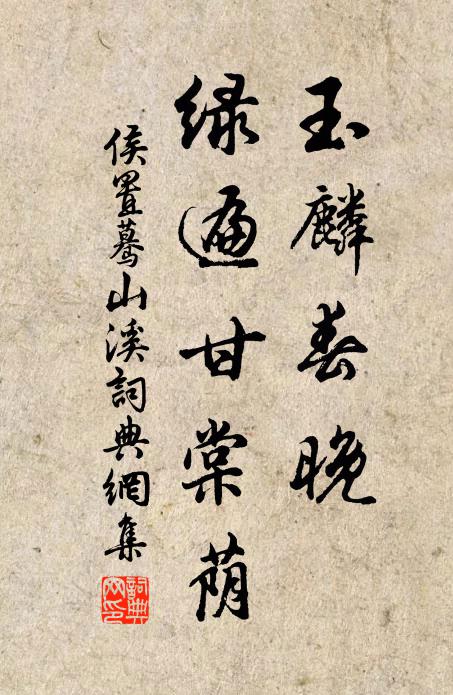 玉麟春晚
绿遍甘棠荫
侯置蓦山溪词典網集
詞典网印